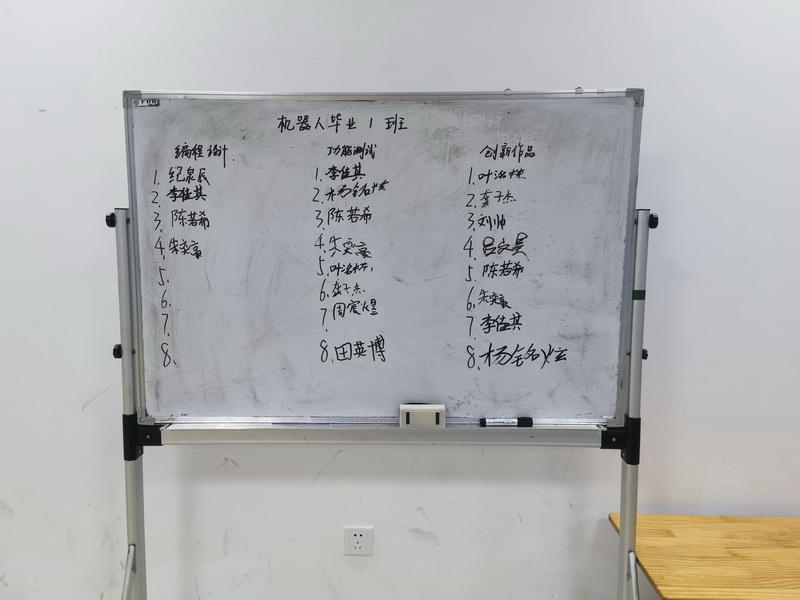 机器人毕业1班
编程设计
1. 纪泉辰
2. 李佳其
3. 陈若希
4. 朱奕豪
5.
6.
7.
8.
功能测试
1. 李佳其
2. 杨铭炫
3. 陈若希
4. 朱奕豪
5. 叶
6. 龚子杰
7. 周宸煜
8. 田英博
创新作品
1. 叶
2. 龚子杰
3. 刘帅
4. 吕文昊
5. 陈若希
6. 朱奕豪
7. 李佳其
8. 杨铭炫